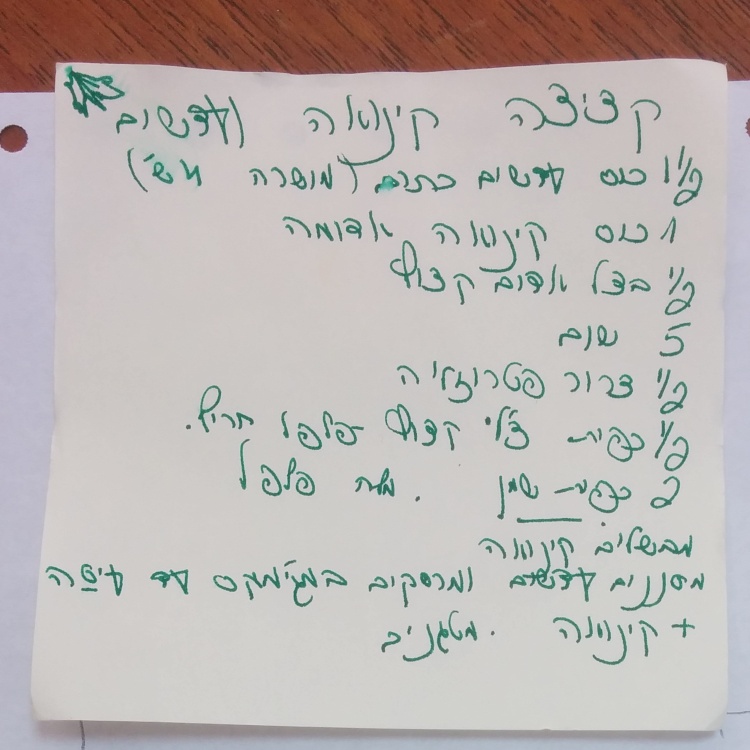 קציצה קינואה ועדשים
1/2 1 כוס עדשים כתום (מושרה
1 כוס קינואה אדומה
1/2 בצל אדום קצוץ
5 שום
1/2 צרור פטרוזליה
1/2 כפית צ'לי קצוץ פלפל חריף.
2 כפית שמן. מלח פלפל
מבשלים קינואה
מסננים עדשים ומרסקים במג'ימקס עד עיסה
+ קינואה. מטגנים